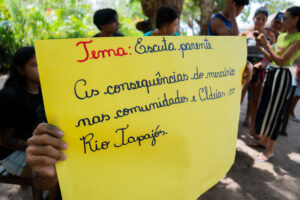 Tema: Escuta parente
As consequências do mercúrio
nas comunidades e Aldeias no
Rio Tapajós.